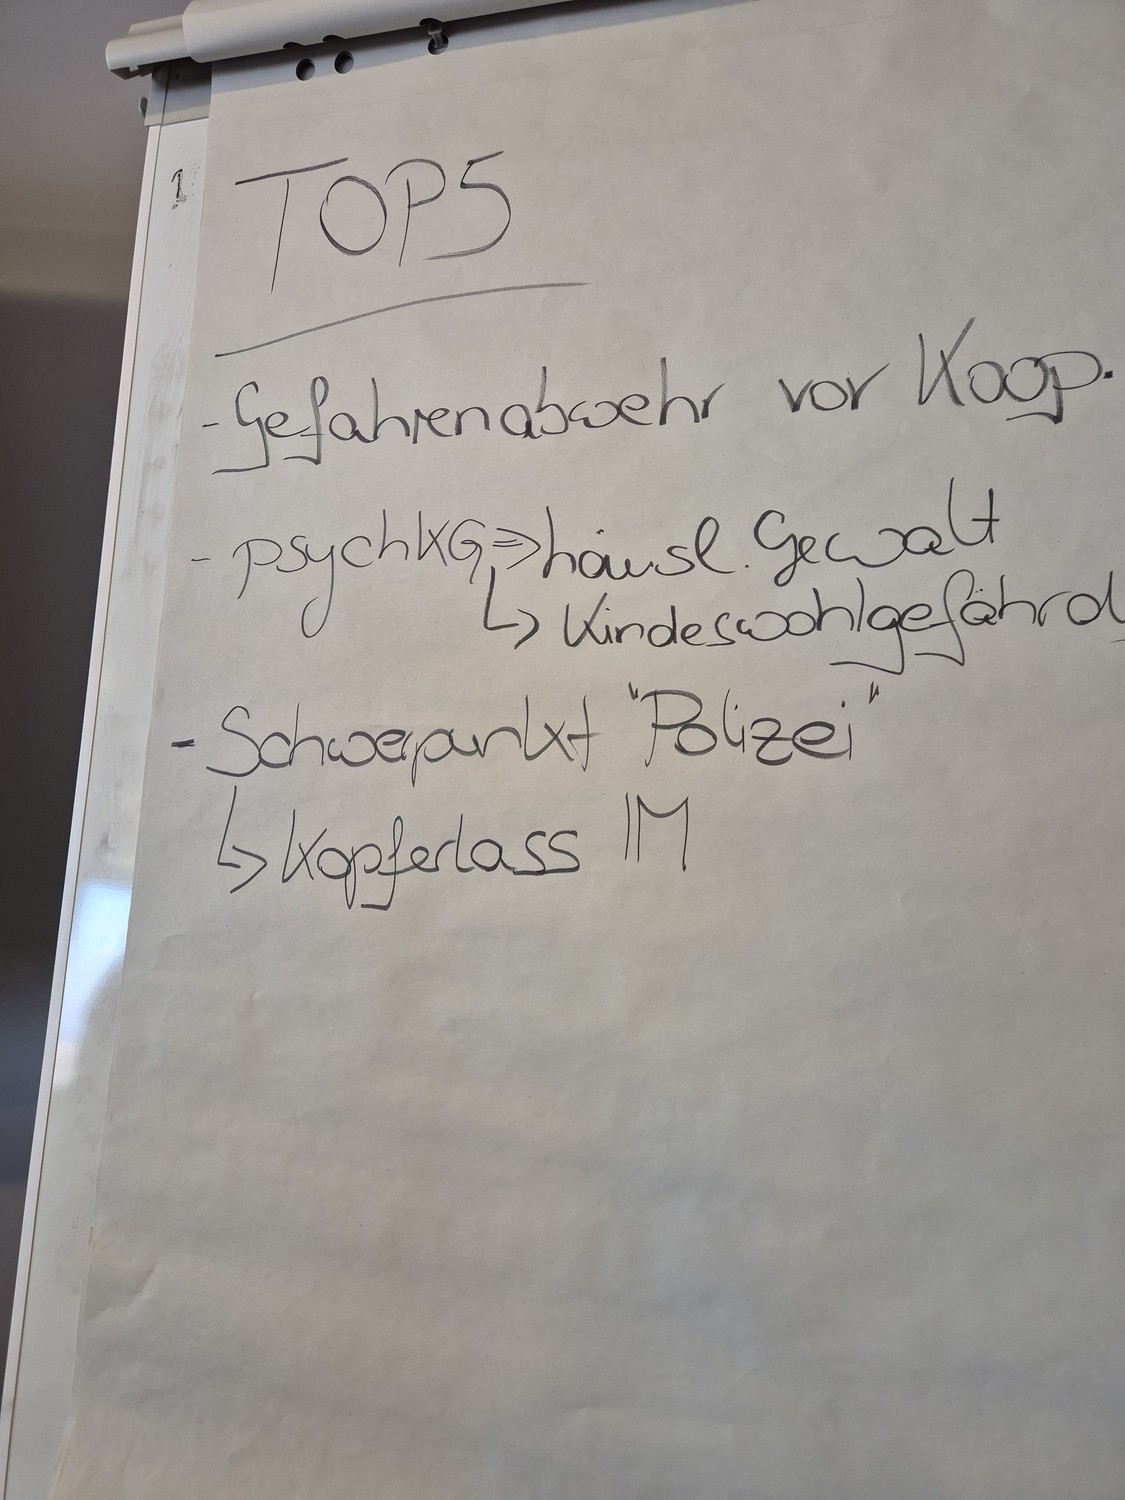 1
TOP5
- Gefahrenabwehr vor Koop.
- psychKG => häusl. Gewalt
↳ Kindeswohlgefährd
- Schwerpunkt "Polizei"
↳ Kopferlass IM